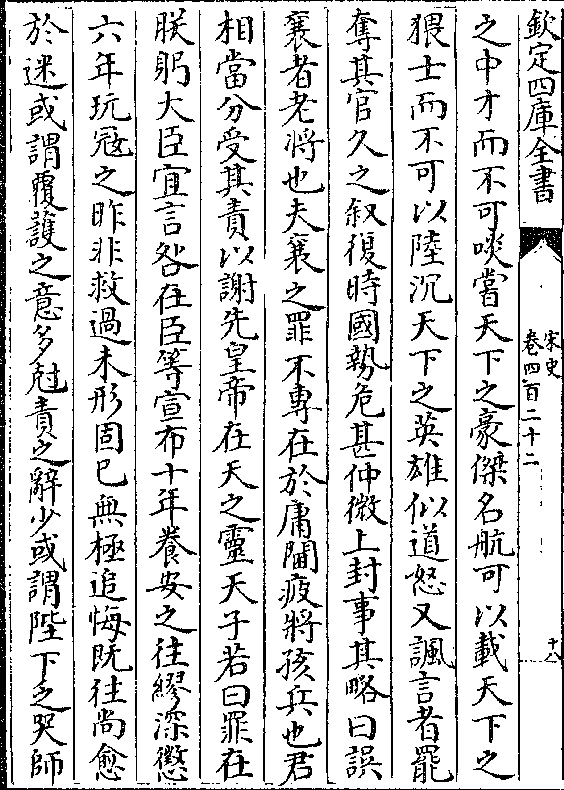 欽定四庫全書
宋史
卷四百二十二
十八
之中才而不可啖嘗天下之豪傑名航可以載天下之
猥士而不可以陸沉天下之英雄似道怒又諷言者罷
奪其官久之叙復時國勢危甚仲微上封事其略曰誤
襄者老將也夫襄之罪不專在於庸閫疲將孩兵也君
相當分受其責以謝先皇帝在天之靈天子若曰罪在
朕躬大臣宜言咎在臣等宣布十年養安之往繆深懲
六年玩寇之昨非救過未形固已無極追悔既往尚愈
於迷或謂覆護之意多尅責之辭少或謂陛下乏哭師